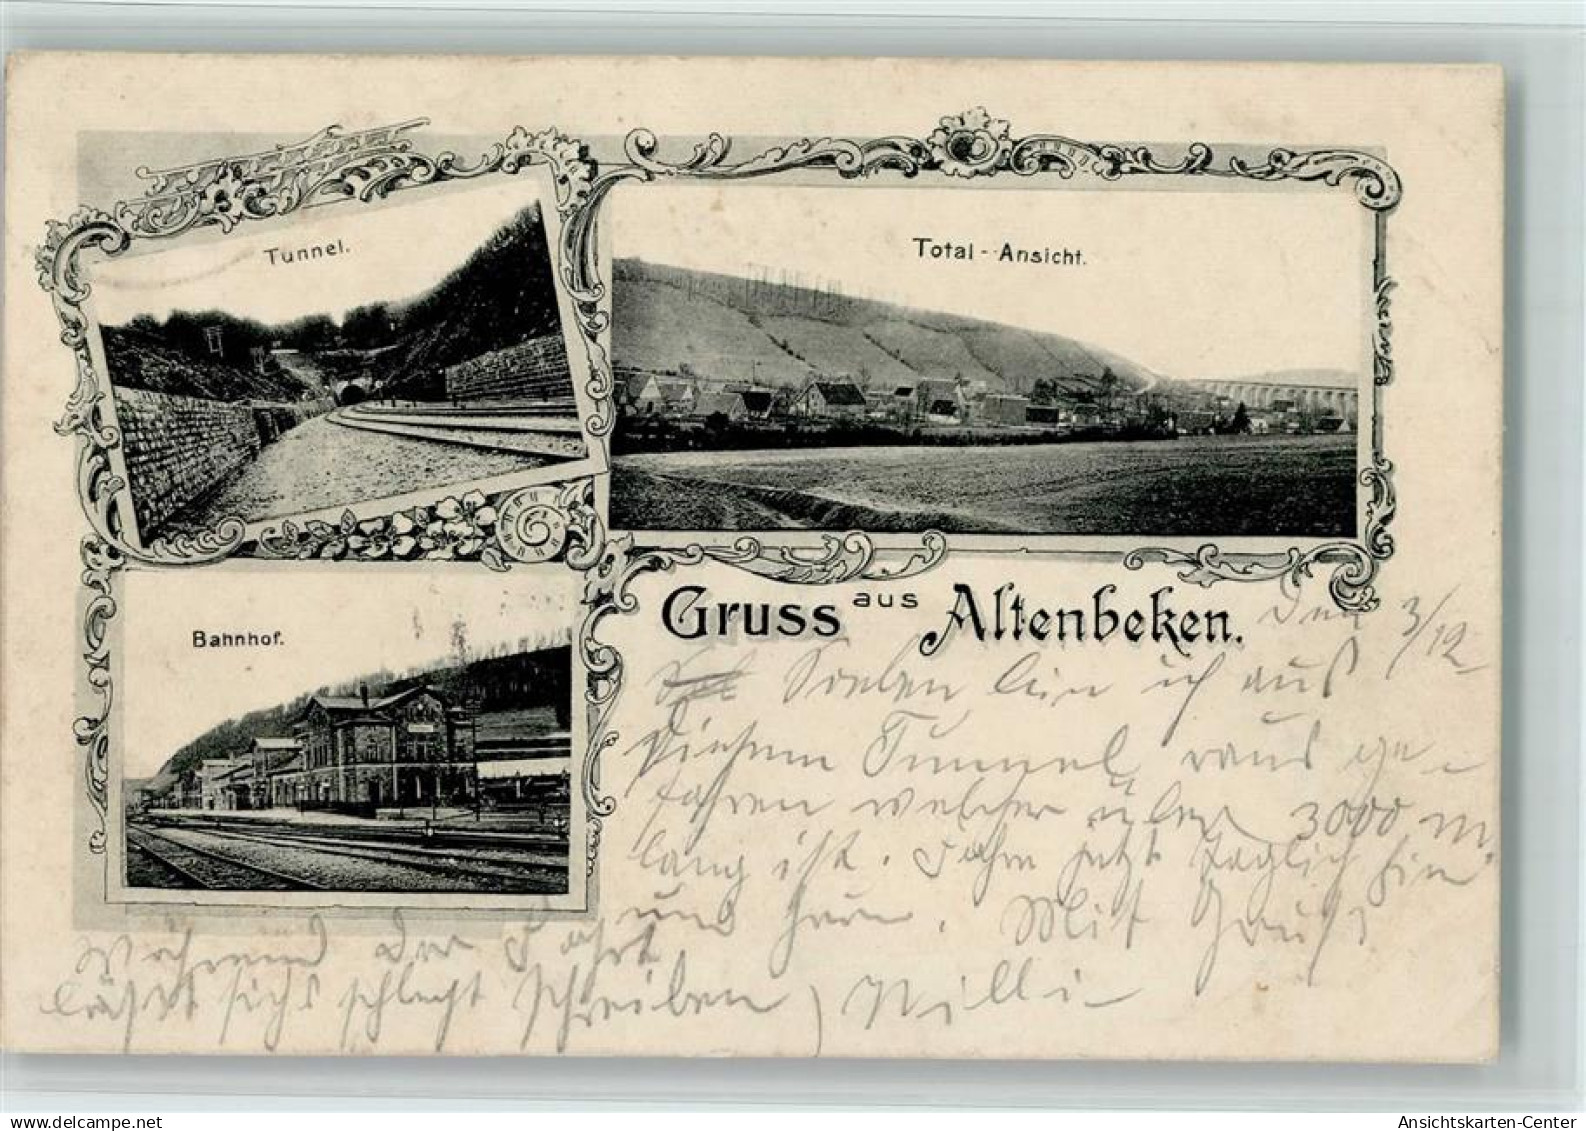 Tunnel.
Total - Ansicht.
Bahnhof.
Gruss aus Altenbeken.
Den 3/12
Soeben bin ich aus
diesem Tunnel raus ge-
fahren welcher über 3000 m
lang ist. Fahre jetzt täglich hin
und her. Mit Gruß
Während der Fahrt
läßt sichs schlecht schreiben, Willi
www.delcampe.net
Ansichtskarten-Center